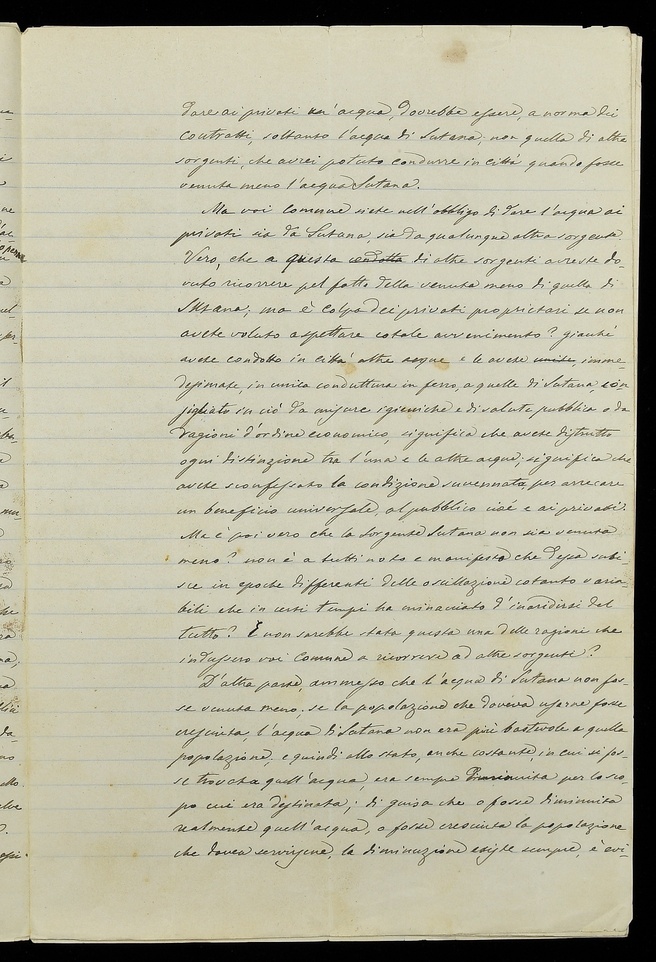 dare ai privati un'acqua, dovrebbe essere, a norma dei
contratti, soltanto l'acqua di Sutana, non quella di altre
sorgenti, che avrei potuto condurre in città quando fosse
venuta meno l'acqua Sutana.
Ma voi Comune siete nell'obbligo di dare l'acqua ai
privati sia da Sutana, sia da qualunque altra sorgente.
Vero, che a questa condotta di altre sorgenti avreste do-
vuto ricorrere pel fatto della venuta meno di quella di
Sutana; ma è colpa dei privati proprietari se non
avete voluto aspettare cotale avvenimento? giacché
avete condotto in città altre acque e le avete unite, imme-
desimate, in unica conduttura in ferro, a quelle di Sutana, con
sigliato su ciò da misure igieniche e di salute pubblica o da
ragioni d'ordine economico, significa che avete distrutto
ogni distinzione tra l'una e le altre acque, significa che
avete sconfessato la condizione suvennata, per arrecare
un beneficio universale, al pubblico cioè e ai privati.
Ma è poi vero che la sorgente Sutana non sia venuta
meno? non è a tutti noto e manifesto che dessa subi-
sce in epoche differenti delle oscillazione cotanto varia-
bili che in certi tempi ha minacciato d'inaridirsi del
tutto? E non sarebbe stata questa una delle ragioni che
indussero voi Comune a ricorrere ad altre sorgenti?
D'altra parte, ammesso che l'acqua di Sutana non fos-
se venuta meno, se la popolazione che doveva usarne fosse
cresciuta, l'acqua di Sutana non era più bastevole a quella
popolazione, e quindi allo stato, anche costante, in cui si fos-
se trovata quell'acqua, era sempre diminuita per lo sco-
po cui era destinata; di guisa che o fosse diminuita
realmente quell'acqua, o fosse cresciuta la popolazione
che dovea servirsene, la diminuzione esiste sempre, è evi-